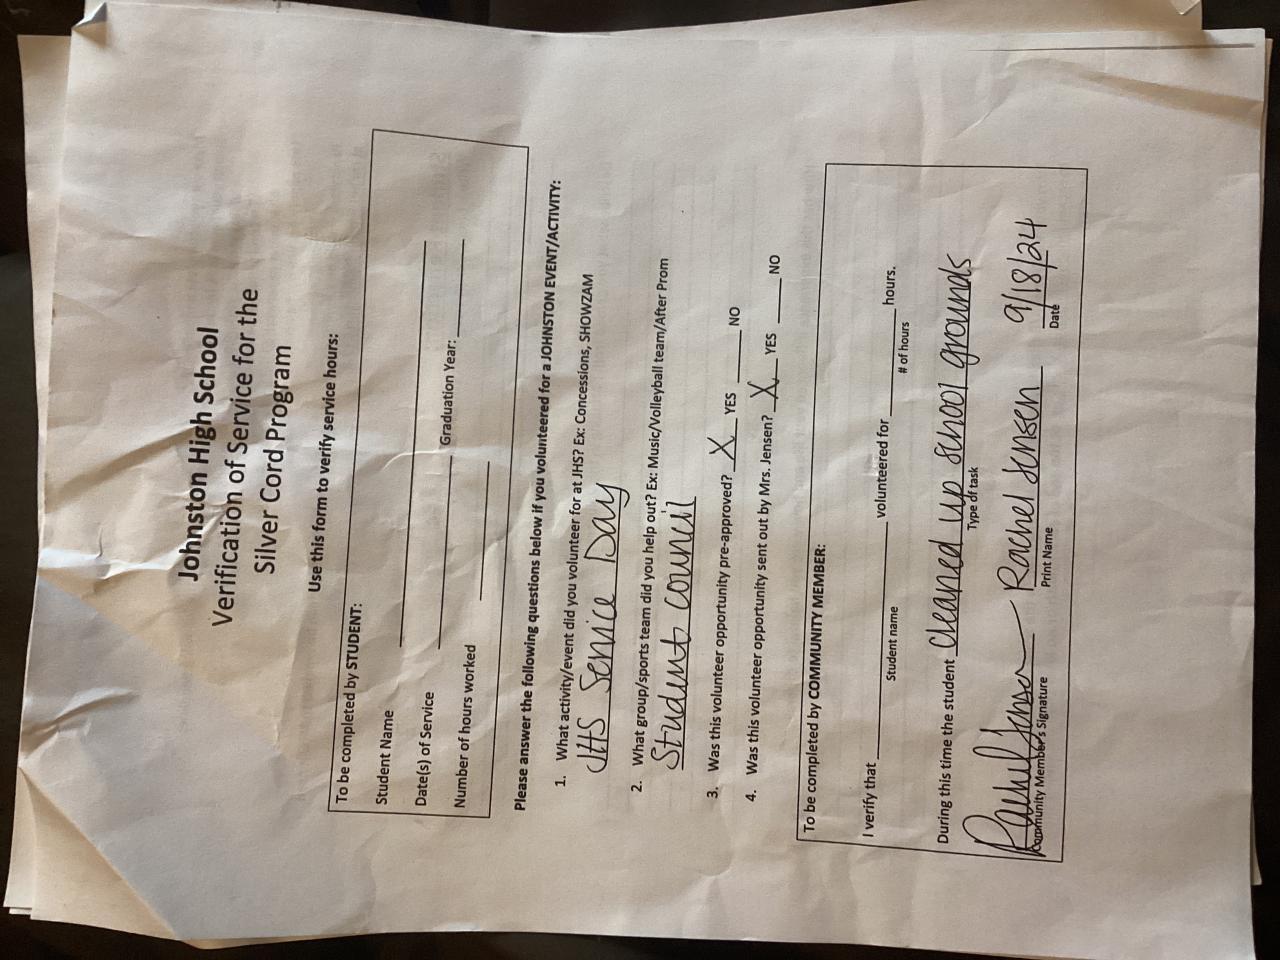 Johnston High School
Verification of Service for the
Silver Cord Program
Use this form to verify service hours:
To be completed by STUDENT:
Student Name
Date(s) of Service Graduation Year:
Number of hours worked
Please answer the following questions below if you volunteered for a JOHNSTON EVENT/ACTIVITY:
1. What activity/event did you volunteer for at JHS? Ex: Concessions, SHOWZAM
JHS Service Day
2. What group/sports team did you help out? Ex: Music/Volleyball team/After Prom
Student Council
3. Was this volunteer opportunity pre-approved? X YES NO
4. Was this volunteer opportunity sent out by Mrs. Jensen? X YES NO
To be completed by COMMUNITY MEMBER:
I verify that volunteered for hours.
Student name # of hours
During this time the student cleaned up school grounds
Type of task
Rachel Jensen Rachel Jensen 9/18/24
Community Member's Signature Print Name Date